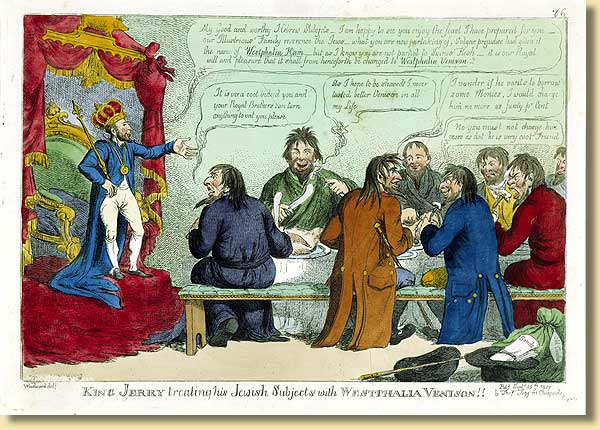 My Good and worthy Hebrew Subjects - I am happy to see you enjoy the feast I have prepared for you -
our Illustrious Family reverence the Jews - what you are now partaking of, Vulgar prejudice had given it
the name of Westphalia Ham - but as I know you are not partial to Swines Flesh - it is our Royal
will and pleasure that it shall from henceforth be changed to Westphalia Venison!!
It is vera cool indeed you and
your Royal Brothers can turn
anything to vat you please
As I hope to be shaved I never
tasted better Venison in all
my Life
I vonder if he vants to borrow
some Monies, I vould charge
him no more as forty pr Cent
No you must not charge him
more as dat he is very coot Friend
Woodward delt
KING JERRY treating his Jewish Subjects with WESTPHALIA VENISON!!
by Thos Tegg 111 Cheapside